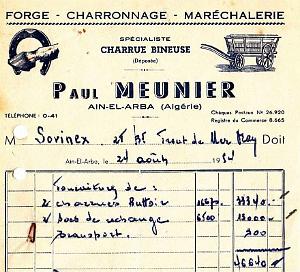 FORGE - CHARRONNAGE - MARÉCHALERIE
SPÉCIALISTE
CHARRUE BINEUSE
(Déposée)
PAUL MEUNIER
AIN-EL-ARBA (Algérie)
TÉLÉPHONE : 0-41
Chèques Postaux N° 26.920
Registre du Commerce 8.665
M Sovinex Doit
Ain-El-Arba, le 24 août 1954
Fourniture de :
2 charrues Buttoir
2 socs de rechange 6500
transport. 200